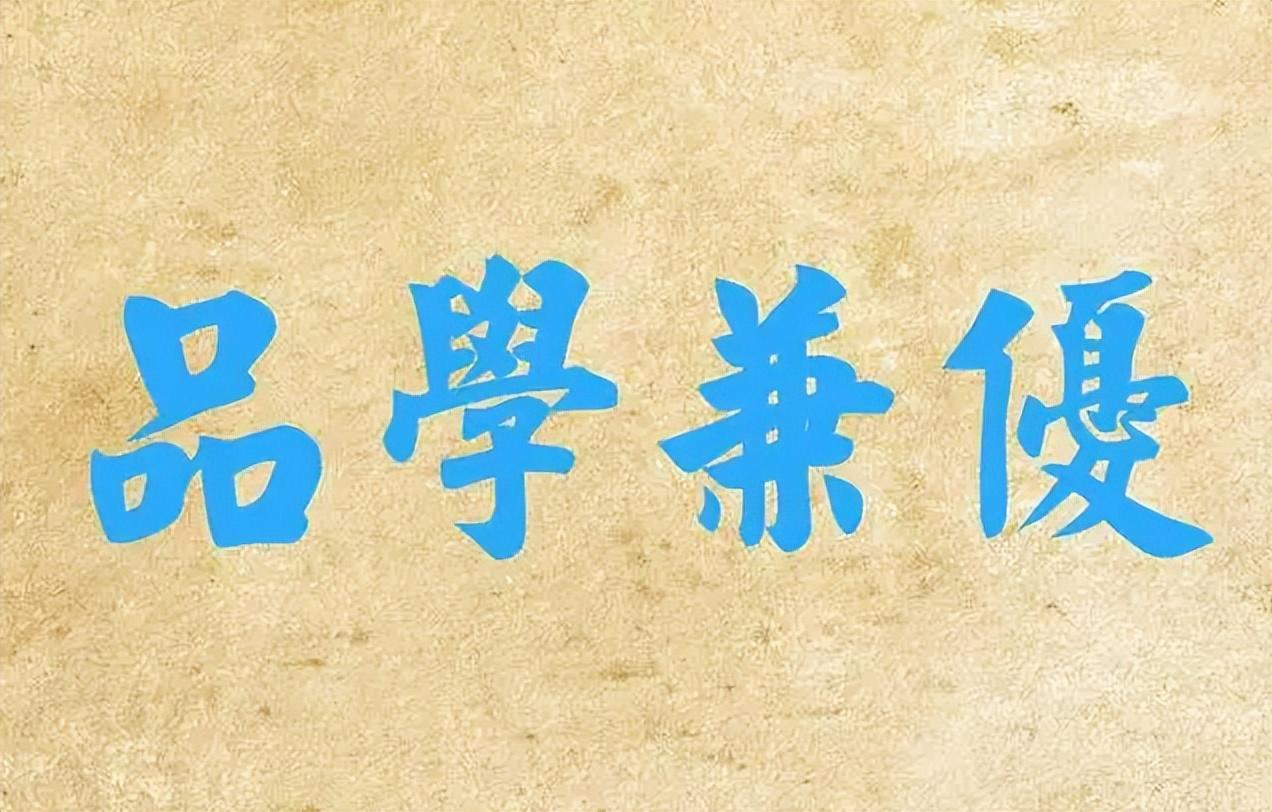 品學兼優